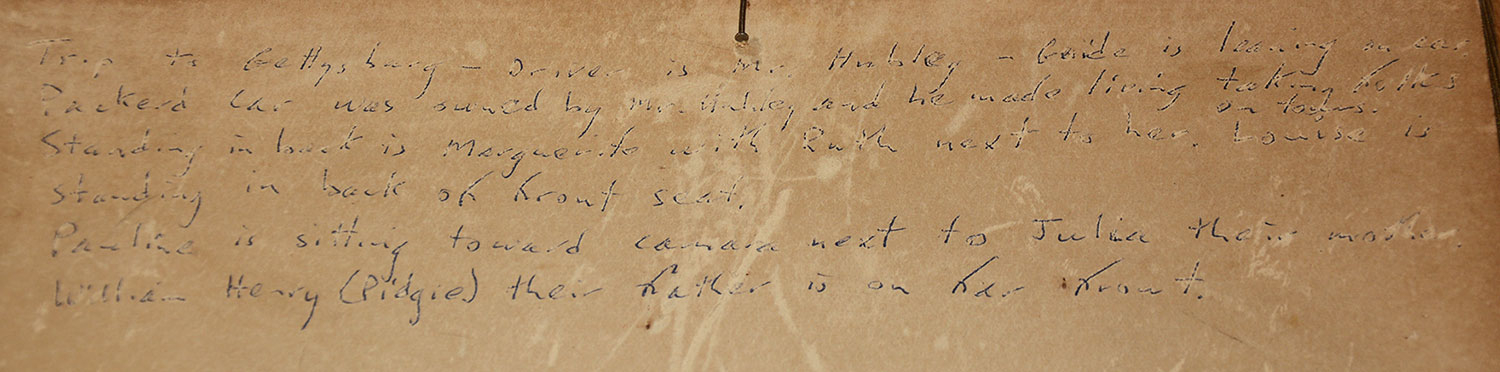 Trip to Gettysburg - Driver is Mr. Hubley - Guide is leaning on car
Packerd car was owned by Mr. Hubley and he made living taking folks
on tours.
Standing in back is Marguerite with Ruth next to her. Louise is
standing in back of front seat.
Pauline is sitting toward camara next to Julia their mother.
William Henry (Pidgie) their father is on far front.